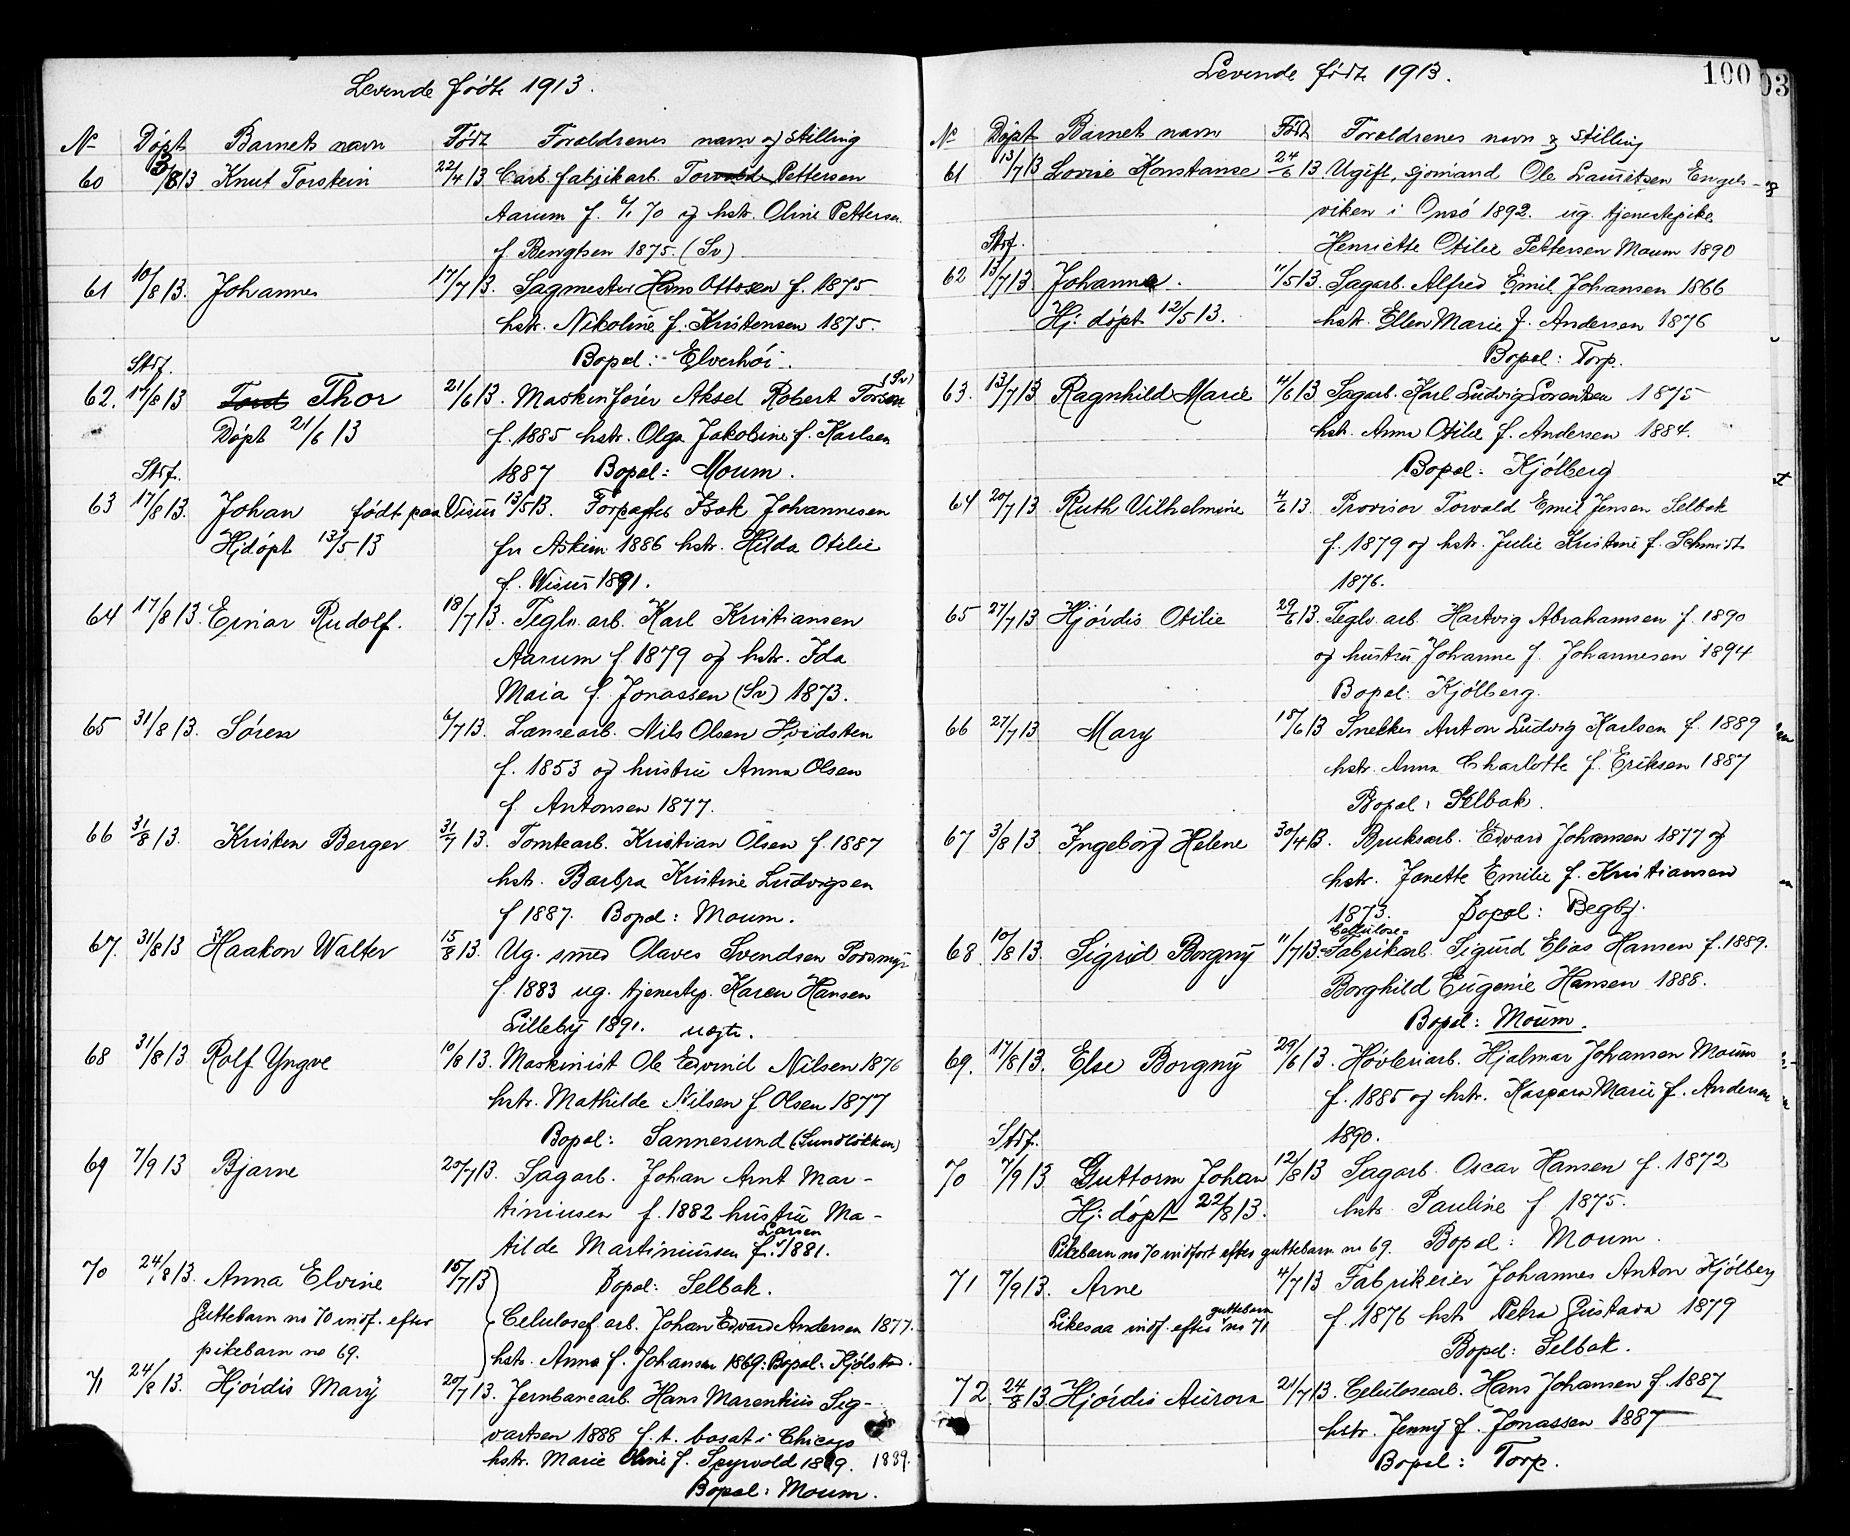 Levende fødte 1913.
No Døpt Barnets navn Født Foraldrenes navn og stilling
60 3/8 13 Knut Torstein 22/4 13 Carb. fabrikarb. Pettersen
Aarum f. 70 og hstr. Oline Pettersen
f. Bengtsen 1875. (Sv)
61 10/8 13. Johannes 17/7 13. Sagmester Hans Ottosen f. 1875
hstr. Nikoline f. Kristensen 1875.
Bopel: Elverhöi.
Stdf.
62. 17/8 13 Thor 21/6 13. Maskinfører Aksel Robert (Sv)
Döpt 21/6 13 f. 1885 hstr. Olga Jakobine f. Karlsen
Stdf. 1887 Bopel: Moum.
63 17/8 13. Johan født paa Visür 13/5 13. Forpagter Isak Johannesen
Hjdöpt 13/5 13 fra Askim 1886 hstr. Hilda Otilie
f. Wisür 1891.
64 17/8 13. Einar Rudolf. 18/7 13. Teglv. arb. Karl Kristiansen
Aarum f. 1879 og hstr. Ida
Maia f. Jonassen (Sv) 1873.
65 31/8 13. Søren 6/7 13. Lænsearb. Nils Olsen Hvidsten
f. 1853 og hustrü Anna Olsen
f. Antonsen 1877.
66 31/8 13. Kristen Berger 31/7 13. Tomtearb. Kristian Olsen f. 1887
hstr. Barbra Kristine Ludvigsen
f 1887. Bopel: Moum.
67. 31/8 13 Haakon Walter 15/8 13. Ug. smed Olaves Svendsen
f. 1883 ug. tjenestep. Karen Hansen
Lilleby 1891. uegte.
68 31/8 13 Rolf Yngve 10/8 13. Maskinist Ole Edvind Nilsen 1876
hstr. Mathilde Nilsen f Olsen 1877
Bopel: Sannesund (Sundløkken)
69 7/9 13 Bjarne 20/7 13. Sagarb. Johan Arnt Mar-
tiniusen f. 1882 hustrü Ma-
tilde Martiniussen f. Larsen 1881.
70 24/8 13. Anna Elvine 15/7 13 Bopel: Selbak.
Guttebarn no 70 indf. efter Celulosef. arb. Johan Edvard Andersen 1877.
pikebarn no 69. hstr. Anna f. Johansen 1869. Bopel: Kjölstad.
71 24/8 13. Hjördis Marÿ 20/7 13. Jernbanearb. Hans Marentius Sig-
vartsen 1888 f. t. bosat i Chicago
hstr. Marie Oline f. Spyrvold 1889. 1889.
Bopel: Moum.
Levende født 1913. 100
03
No Döpt Barnets navn Født Foraldrenes navn og stilling
61 13/7 13 Lovise Konstanse 24/6 13. Ugift, sjømand Ole Lauritsen Engels-
viken i Onsö 1892. ug. tjenestepike
Stdf. Henriette Otilie Pettersen Moum 1890
62 13/7 13 Johanne. 11/5 13. Sagarb. Alfred Emil Johansen 1866
Hj: döpt 12/5 13. hstr. Ellen Marie f. Andersen 1876
Bopel: Torp.
63. 13/7 13 Ragnhild Marie 4/6 13 Sagarb. Karl Ludvig Lorentzen 1875
hstr. Anna Otilie f. Andersen 1884.
Bopel: Kjölberg
64 20/7 13 Ruth Vilhelmine 4/6 13. Provisor Torvald Emil Jensen Selbak
f. 1879 og hstr. Julie Kristine f. Schmidt
1876.
65 27/7 13 Hjördis Otilie 29/6 13. Teglv. arb. Hartvig Abrahamsen f. 1890
og hustrü Johanne f. Johannesen 1894
Bopel: Kjölberg.
66 27/7 13 Mary 15/6 13 Snekker Anton Ludvig Karlsen f. 1889
hstr. Anna Charlotte f. Eriksen 1887
Bopel: Selbak.
67 3/8 13 Ingeborg Helene 30/4 13. Bruksarb. Edvard Johansen 1877 og
hstr. Janette Emilie f. Kristiansen
1873. Bopel: Begby.
68. 10/8 13. Sigrid Borgny 11/7 13. Cellulose-Fabrikarb. Sigurd Elias Hansen f. 1889.
Borghild Eugenie Hansen 1888.
Bopel: Moum.
69. 17/8 13. Else Borgny 29/6 13. Høvleriarb. Hjalmar Johansen Moum
f. 1885 og hstr. Kaspara Marie f. Andersen
Stdf. 1890.
70 7/9 13 Guttorm Johan 12/8 13 Sagarb. Oscar Hansen f. 1872
Hj: döpt 22/8 13. hstr. Pauline f 1875.
Pikebarn no 70 indført efter guttebarn no 69. Bopel: Moum.
71 7/9 13. Arne 4/7 13 Fabrikeier Johannes Anton Kjölberg
Likesaa indf. efter guttebarn no 71 f. 1876 hstr Petra Gustava 1879
Bopel: Selbak.
72. 24/8 13 Hjördis Aurora 21/7 13. Celulosearb. Hans Johansen f. 1887
hstr. Jenny f. Jonassen 1887
Bopel: Torp.